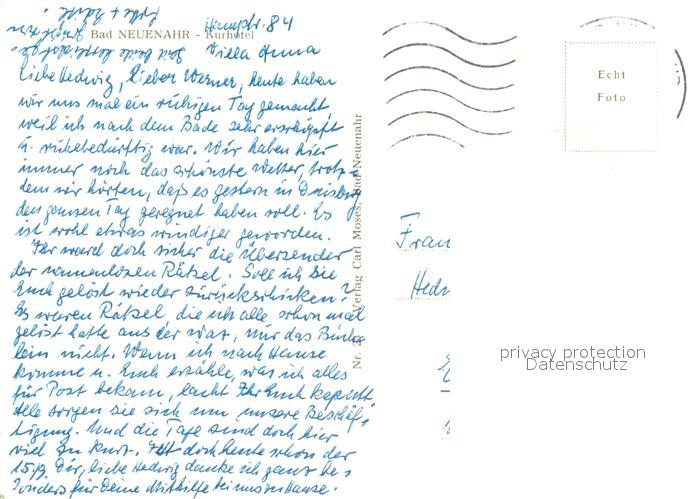 Bad NEUENAHR - Kurhotel
Hauptstr. 84
Villa Anna
Liebe Hedwig, lieber Werner, heute haben
wir uns mal ein ruhigen Tag gemacht
weil ich nach dem Bade sehr erschöpft
u. ruhebedürftig war. Wir haben hier
immer noch das schönste Wetter, trotz=
dem wir hörten, daß es gestern in Duisburg
den ganzen Tag geregnet haben soll. Es
ist wohl etwas windiger geworden.
Ihr ward doch sicher die Übersender
der namenlosen Rätsel. Soll ich sie
Euch gelöst wieder zurückschicken?
Es waren Rätsel, die ich alle schon mal
gelöst hatte aus der     , nur das Büch=
lein nicht. Wenn ich nach Hause
komme u. Euch erzähle, was ich alles
für Post bekam, lacht Ihr Euch kaputt
Alle sorgen sie sich um unsere Beschäf=
tigung. Und die Tage sind doch hier
viel zu kurz. Ist doch heute schon der
15/9. Dir, liebe Hedwig danke ich ganz be=
sonders für Deine Mithilfe bei uns zu Hause.
Nr.
Verlag Carl Moses, Bad Neuenahr
Echt
Foto
Frau
Hedw
privacy protection
Datenschutz